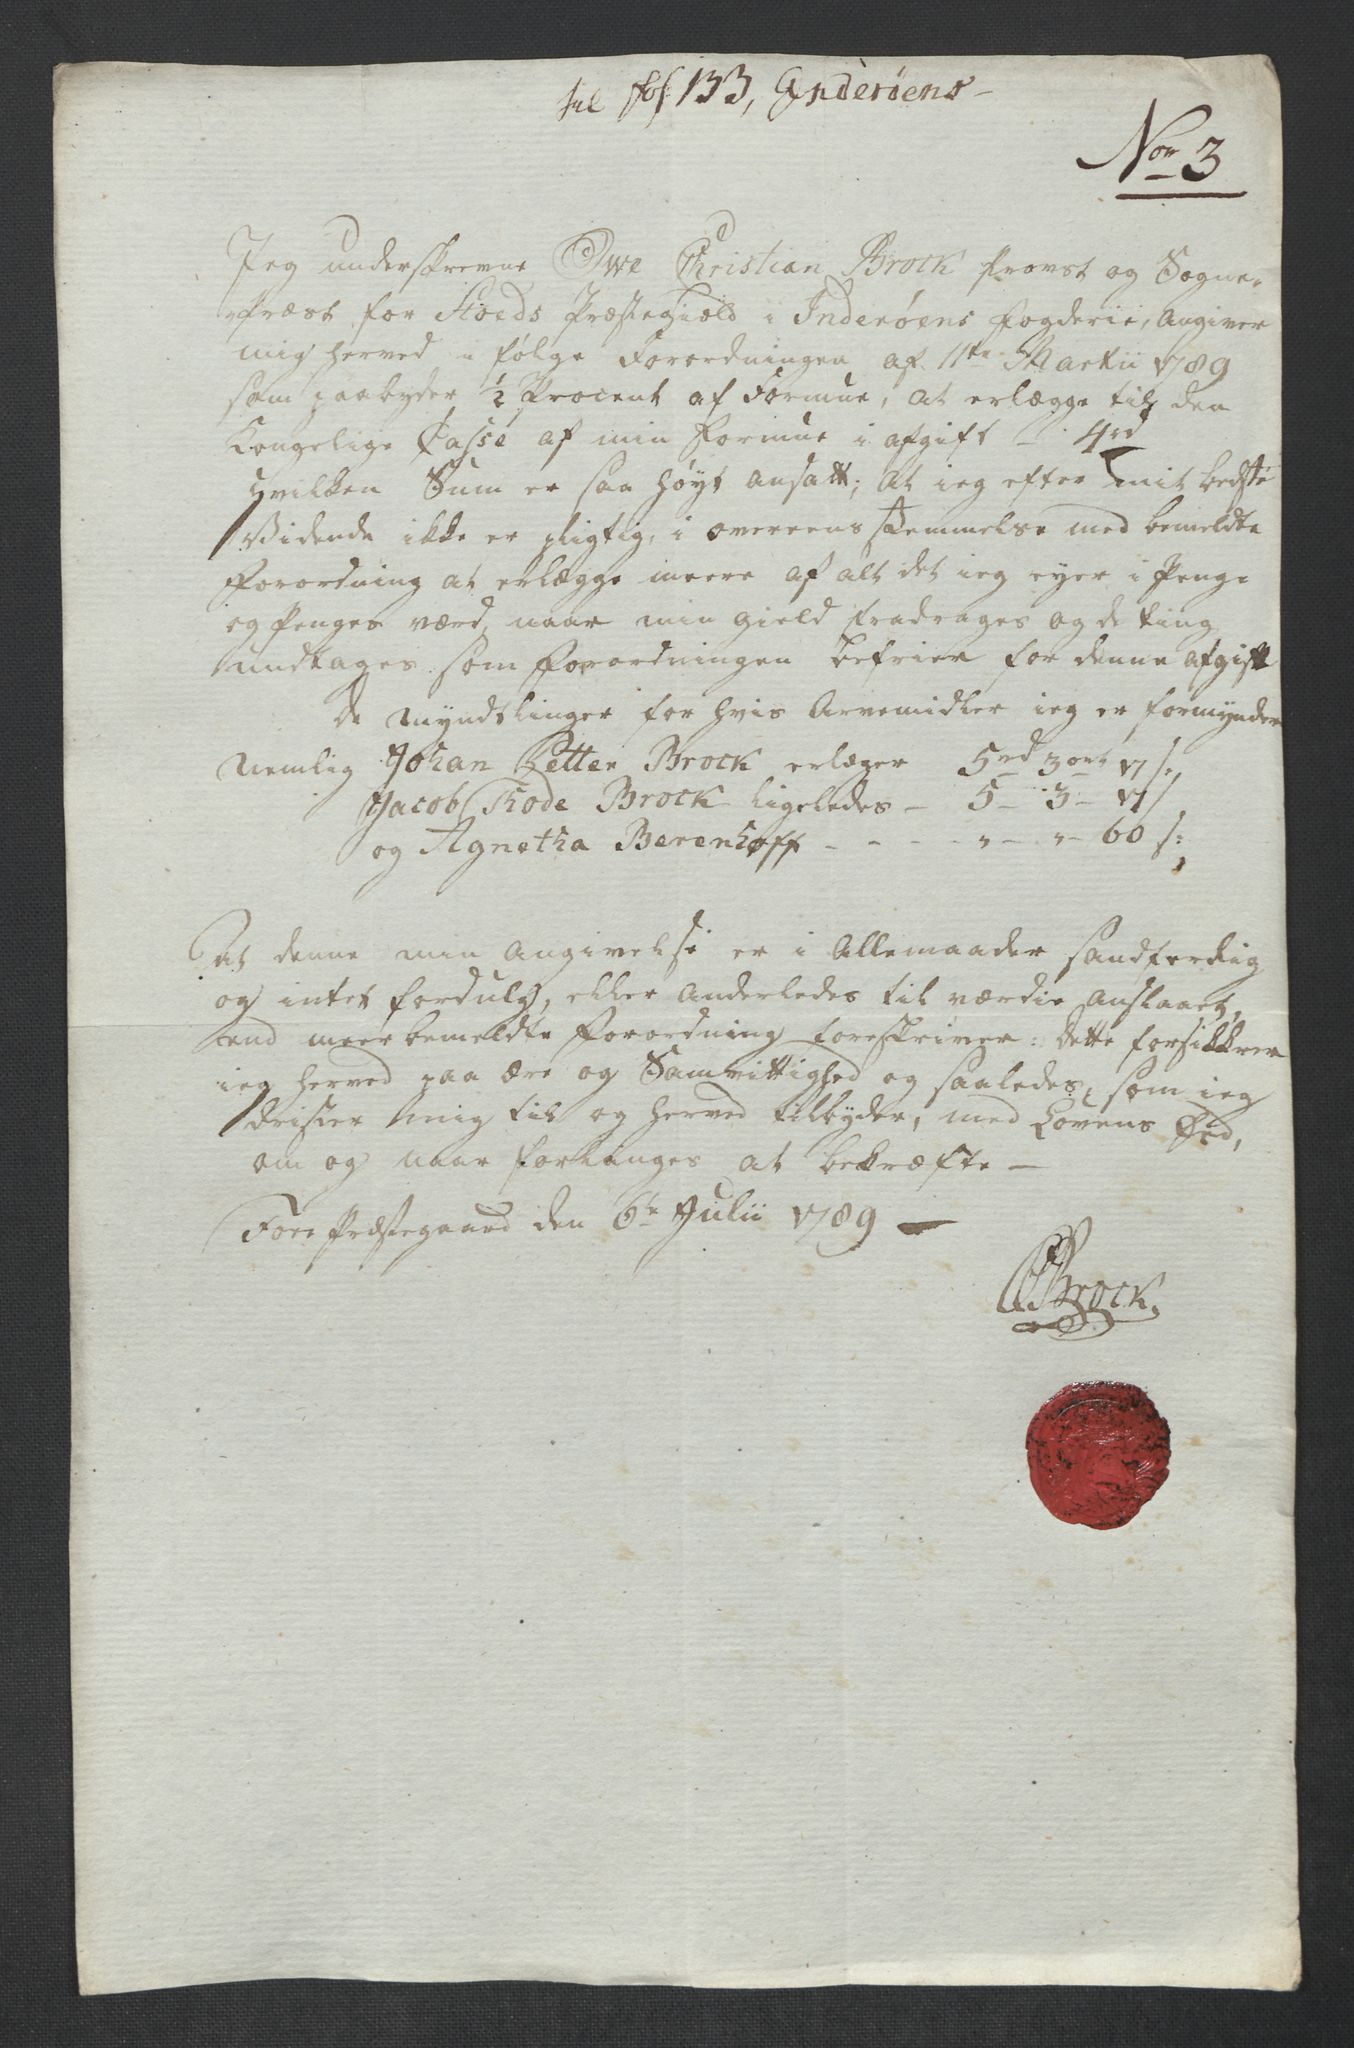 til fol 133, Inderøens
No 3
Jeg underskrevne Owe Christian Brock Provst og Sogne-
Præst for Stoeds Præstegield i Inderøens fogderie, Angiver
mig herved i følge Forordningen af 11te Martii 1789
som paabyder ½ Procent af Formue, at erlægge til den
Kongelige Casse af min Formue i afgift - 4rd
hvilken Sum er saa høyt ansatt; at ieg efter mit bedste
Vidende ikke er pligtig, i overeensstemmelse med bemeldte
Forordning at erlægge meere af alt det ieg eyer i Penge
og Penges værd, naar min Gield fradrages og de ting
undtages som Forordningen befrier for denne afgift
De Myndtlinger for hvis Arvemidler ieg er formynder
Nemlig Johan Petter Brock erlæger 5rd 3ort 17 s:
Jacob Thode Brock ligeledes - 5 - 3 - 17 s
og Agnetha Berenhoff - - - - " - " - 60 s:
At denne min Angivelse er i Allemaader sandferdig
og intet fordulgt, eller anderledes til værdie anslaaet,
end meerbemeldte Forordning foreskriver: dette forsikkrer
ieg herved paa Ære og Samvittighed og saaledes, som ieg
drister mig til og herved tilbyder, med Lovens Eed,
om og naar forlanges at bekræfte -
Foer Præstegaard den 6te Julii 1789
OCBrock.